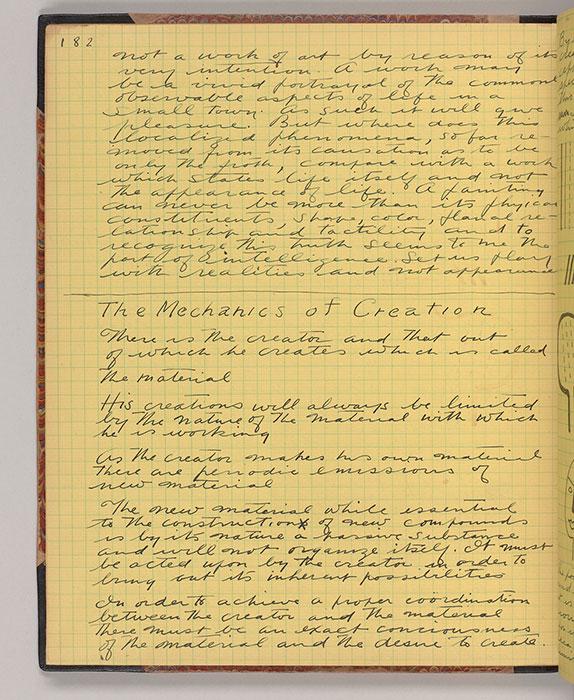 182
not a work of art by reason of its
very intention. A work may
be a vivid portrayal of the common
observable aspects of life in a
small town. As such it will give
pleasure. But where does this
localized phenomena, so far re-
moved from its causation as to be
only the froth, compare with a work
which states life itself and not
the appearance of life. A painting
can never be more than its physical
constituents, shape, color, planal re-
lationship and tactility and to
recognize this truth seems to me the
part of intelligence. Let us play
with realities and not appearance
The Mechanics of Creation
There is the creator and that out
of which he creates which is called
the material
His creations will always be limited
by the nature of the material with which
he is working
As the creator makes his own material
there are periodic emissions of
new material
The new material while essential
to the construction of new compounds
is by its nature a passive substance
and will not organize itself. It must
be acted upon by the creator in order to
bring out its inherent possibilities
In order to achieve a proper coordination
between the creator and the material
there must be an exact conciousness
of the material and the desire to create.